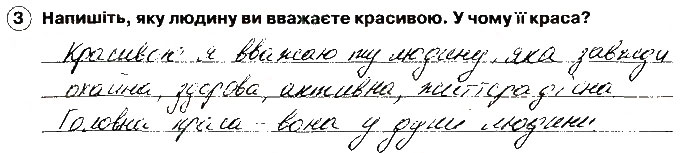 3 Напишіть, яку людину ви вважаєте красивою. У чому її краса?
Красивою я вважаю ту людину, яка завжди
охайна, здорова, активна, життєрадісна
Головна краса - вона у душі людини.